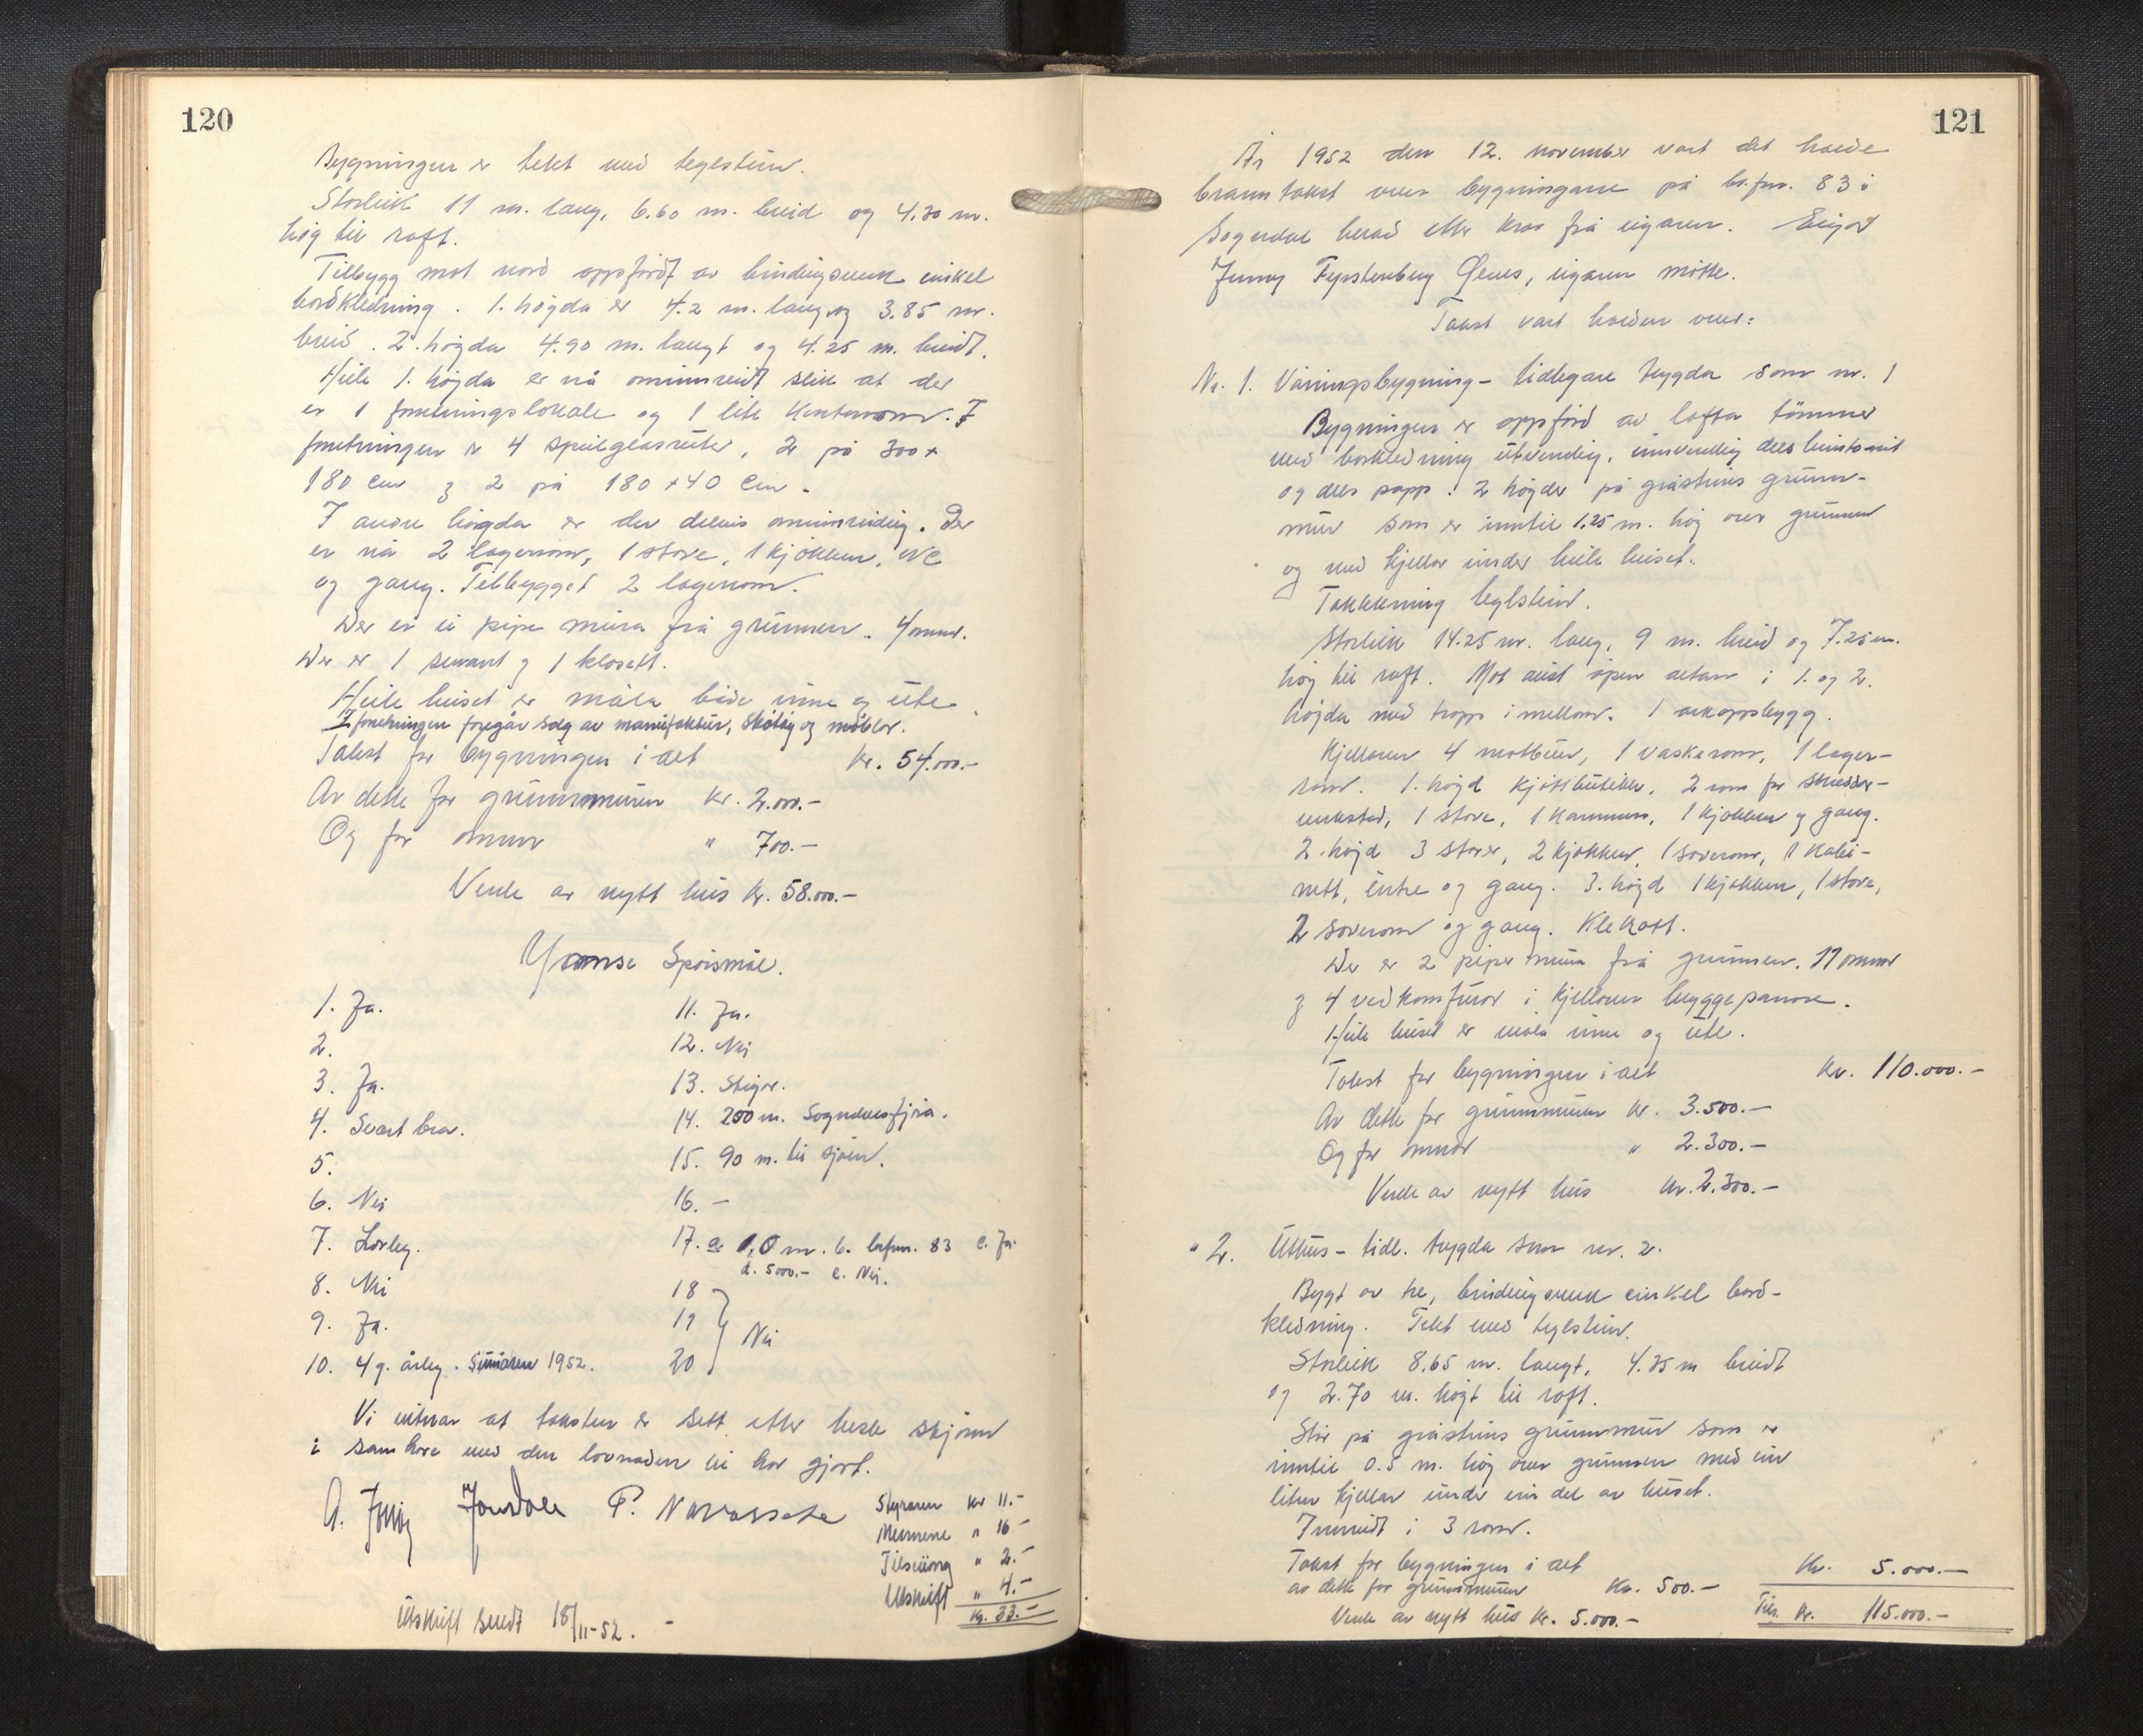 120
Bygningen er tekt med teglstein.
Storleik 11 m. lang, 6.60 m. breid og 4.30 m.
høg til raft.
Tilbygg mot nord oppsført av bindingsverk enkel
bordkledning. 1. høgda er 4.2 m. lang og 3.85 m.
breid. 2. høgda 4.90 m. langt og 4.25 m. breidt.
Heile 1. høgda er nå ominnreidt slik at der
er 1 forretningslokale og 1 lite kontorrom. I
forretningen er 4 speilglasruter, 2 på 300 x
180 cm og 2 på 180 x 40 cm.
I andre høgda er der delvis ominnreiding. Der
er nå 2 lagerrom, 1 stove, 1 kjøkken, WC
og gang. Tilbygget 2 lagerrom.
Der er ei pipe mura frå grunnen. 4 omnar.
Der er 1 servant og 1 klosett.
Heile huset er måla både inne og ute.
I forretningen foregår salg av manufaktur, skotøy og møblar.
Takst for bygningen i alt kr. 54.000.-
Av dette for grunnmuren kr. 2.000.-
Og for omnar " 700.-
Verde av nytt hus kr. 58.000.-
Ymse Spørsmål.
1. Ja.
2.
3. Ja.
4. Svært bra.
5.
6. Nei
7. Lovleg.
8. Nei
9. Ja.
10. 4 g. årleg. Sumaren 1952.
11. Ja.
12. Nei
13. Stigar.
14. 200 m. Sogndalsfjøra.
15. 90 m. til sjøen.
16. -
17. a. 1,0 m. b. brfnr. 83 c. Ja.
d. 5000.- e. Nei.
18
19 Nei
20
Vi vitnar at taksten er sett etter beste skjønn
i samhøve med den lovnaden vi har gjort.
P. Navarsete
Styraren kr 11.-
Mennene " 16.-
Tilsaman " 2.-
Utskrift " 4.-
Kr. 33.-
Utskrift sendt 18/11-52. -
121
År 1952 den 12. november vart det halde
branntakst over bygningane på br.fnr. 83 i
Sogndal herad etter krav frå eigaren. Eigar
Jenny Fyrstenberg Ølnes, eigaren møtte.
Takst vart halden over:
Nr. 1. Våningsbygning - tidlegare trygda som nr. 1
Bygningen er oppførd av lafta tømmer
med bordkledning utvendig, innvendig dels huntonit
og dels papp. 2 høgder på gråsteins grunn-
mur som er inntil 1.25 m. høg over grunnen
og med kjellar under heile huset.
Taktekning teglstein.
Storleik 14.25 m. lang, 9 m. breid og 7.25 m.
høg til raft. Mot aust open altan i 1. og 2.
høgda med tropp i mellom. 1 arkoppbygg.
Kjellaren 4 matbuer, 1 vaskerom, 1 lager-
rom. 1. høgd kjøttbutikk, 2 rom for skredder-
verkstad, 1 stove, 1 kammers, 1 kjøkken og gang.
2. høgd 3 stover, 2 kjøkken, 1 soverom, 1 kabi-
nett, entre og gang. 3. høgd 1 kjøkken, 1 stove,
2 soverom og gang. Klekott.
Der er 2 piper mura frå grunnen. 17 omnar
og 4 vedkomfurar i kjellaren bryggepanne.
Heile huset er måla inne og ute.
Takst for bygningen i alt kr. 110.000.-
Av dette for grunnmuren kr. 3.500.-
Og for omnar " 2.300.-
Verde av nytt hus kr. 2.300.-
" 2. Uthus - tidl. trygda som nr. 2.
Bygt av tre, bindingsverk enkel bord-
kledning. Tekt med teglstein.
Storleik 8.65 m. langt, 4.35 m breidt
og 2.70 m. høgt til raft.
Står på gråsteins grunnmur som er
inntil 0.5 m. høg over grunnen med ein
liten kjellar under ein del av huset.
Innreidt i 3 rom.
Takst for bygningen i alt kr. 5.000.-
av dette for grunnmuren kr. 500.-
Verde av nytt hus kr. 5.000.- Tils. kr. 115.000.-